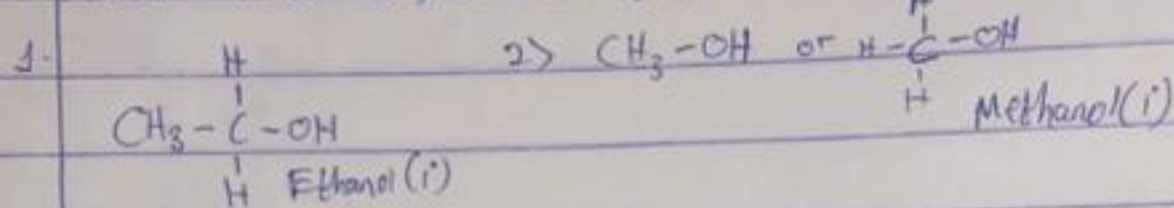 1. H
CH₃-C-OH
H Ethanol (i)
2> CH₃-OH or H-C-OH
H
H Methanol (i)